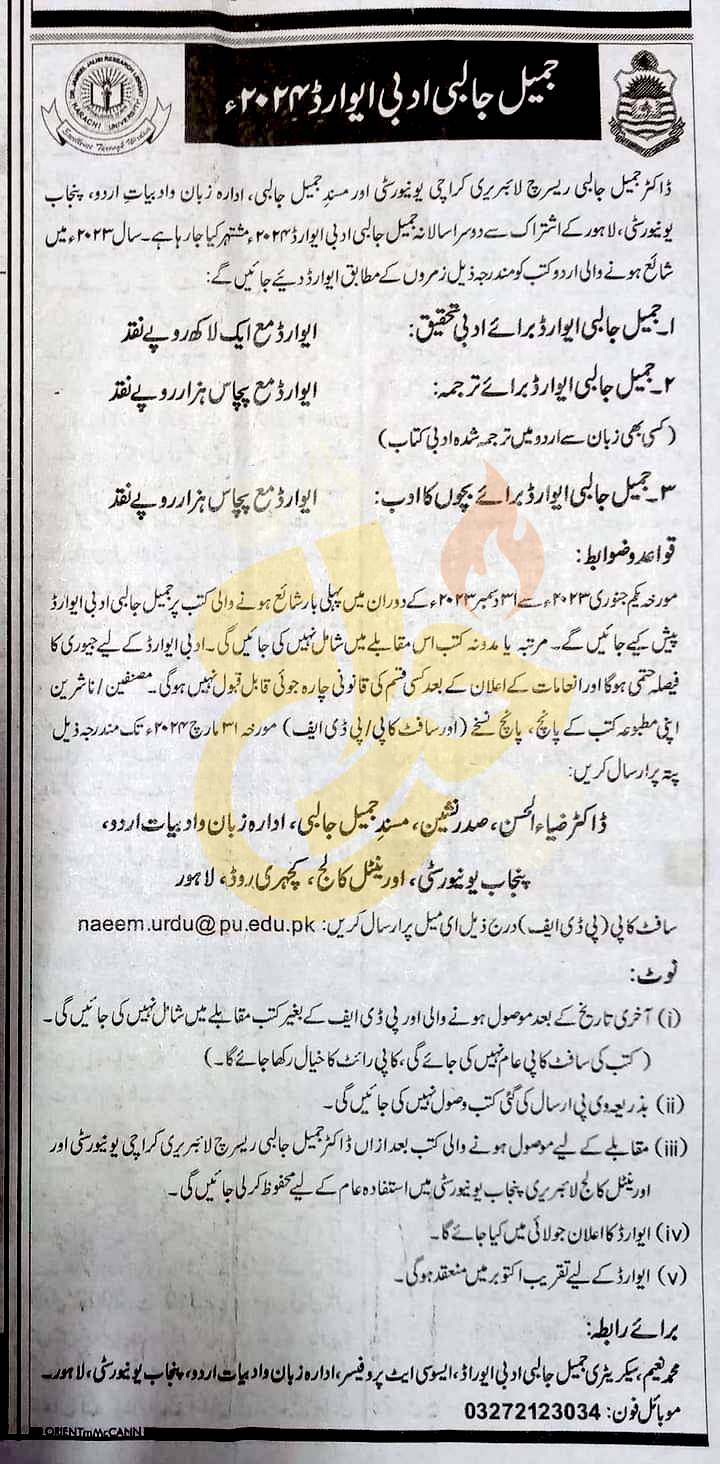 جمیل جالبی ادبی ایوارڈ ۲۰۲۴ء
DR. JAMEEL JALIBI RESEARCH LIBRARY
KARACHI UNIVERSITY
ڈاکٹر جمیل جالبی ریسرچ لائبریری کراچی یونیورسٹی اور مسندِ جمیل جالبی، ادارہ زبان و ادبیاتِ اردو، پنجاب
یونیورسٹی، لاہور کے اشتراک سے دوسرا سالانہ جمیل جالبی ادبی ایوارڈ ۲۰۲۴ء مشتہر کیا جا رہا ہے۔ سال ۲۰۲۳ء میں
شائع ہونے والی اردو کتب کو مندرجہ ذیل زمروں کے مطابق ایوارڈ دیئے جائیں گے:
۱۔ جمیل جالبی ایوارڈ برائے ادبی تحقیق: ایوارڈ مع ایک لاکھ روپے نقد
۲۔ جمیل جالبی ایوارڈ برائے ترجمہ: ایوارڈ مع پچاس ہزار روپے نقد
(کسی بھی زبان سے اردو میں ترجمہ شدہ ادبی کتاب)
۳۔ جمیل جالبی ایوارڈ برائے بچوں کا ادب: ایوارڈ مع پچاس ہزار روپے نقد
قواعد و ضوابط:
مورخہ یکم جنوری ۲۰۲۳ء سے ۳۱ دسمبر ۲۰۲۳ء کے دوران میں پہلی بار شائع ہونے والی کتب پر جمیل جالبی ادبی ایوارڈ
پیش کیے جائیں گے۔ مرتبہ یا مدونہ کتب اس مقابلے میں شامل نہیں کی جائیں گی۔ ادبی ایوارڈ کے لیے جیوری کا
فیصلہ حتمی ہوگا اور انعامات کے اعلان کے بعد کسی قسم کی قانونی چارہ جوئی قابل قبول نہیں ہوگی۔ مصنفین/ناشرین
اپنی مطبوعہ کتب کے پانچ، پانچ نسخے (اور سافٹ کاپی/پی ڈی ایف) مورخہ ۳۱ مارچ ۲۰۲۴ء تک مندرجہ ذیل
پتہ پر ارسال کریں:
ڈاکٹر ضیاء الحسن، صدر نشین، مسندِ جمیل جالبی، ادارہ زبان و ادبیات اردو،
پنجاب یونیورسٹی، اورینٹل کالج، کچہری روڈ، لاہور
سافٹ کاپی (پی ڈی ایف) درج ذیل ای میل پر ارسال کریں: naeem.urdu@pu.edu.pk
نوٹ:
(i) آخری تاریخ کے بعد موصول ہونے والی اور پی ڈی ایف کے بغیر کتب مقابلے میں شامل نہیں کی جائیں گی۔
(کتب کی سافٹ کاپی عام نہیں کی جائے گی، کاپی رائٹ کا خیال رکھا جائے گا۔)
(ii) بذریعہ وی پی ارسال کی گئی کتب وصول نہیں کی جائیں گی۔
(iii) مقابلے کے لیے موصول ہونے والی کتب بعد ازاں ڈاکٹر جمیل جالبی ریسرچ لائبریری کراچی یونیورسٹی اور
اورینٹل کالج لائبریری پنجاب یونیورسٹی میں استفادہ عام کے لیے محفوظ کر لی جائیں گی۔
(iv) ایوارڈ کا اعلان جولائی میں کیا جائے گا۔
(v) ایوارڈ کے لیے تقریب اکتوبر میں منعقد ہوگی۔
برائے رابطہ:
محمد نعیم، سیکریٹری جمیل جالبی ادبی ایوارڈ، ایسوسی ایٹ پروفیسر، ادارہ زبان و ادبیات اردو، پنجاب یونیورسٹی، لاہور۔
موبائل فون: 03272123034
ORIENTmMcCANN